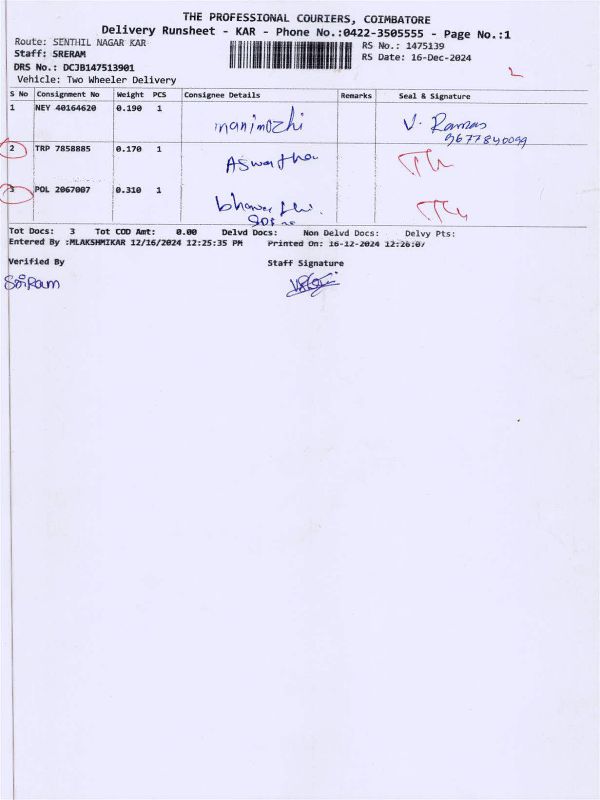 THE PROFESSIONAL COURIERS, COIMBATORE
Delivery Runsheet - KAR - Phone No.:0422-3505555 - Page No.:1
Route: SENTHIL NAGAR KAR
RS No.: 1475139
Staff: SRERAM
RS Date: 16-Dec-2024
DRS No.: DCJB147513901
Vehicle: Two Wheeler Delivery
S No Consignment No Weight PCS Consignee Details Remarks Seal & Signature
1 NEY 40164620 0.190 1 manimozhi V. Raman
9677840099
2 TRP 7858885 0.170 1 Aswatha
3 POL 2067007 0.310 1
Tot Docs: 3 Tot COD Amt: 0.00 Delvd Docs: Non Delvd Docs: Delvy Pts:
Entered By :MLAKSHMIKAR 12/16/2024 12:25:35 PM Printed On: 16-12-2024 12:26:07
Verified By Staff Signature
SriRam